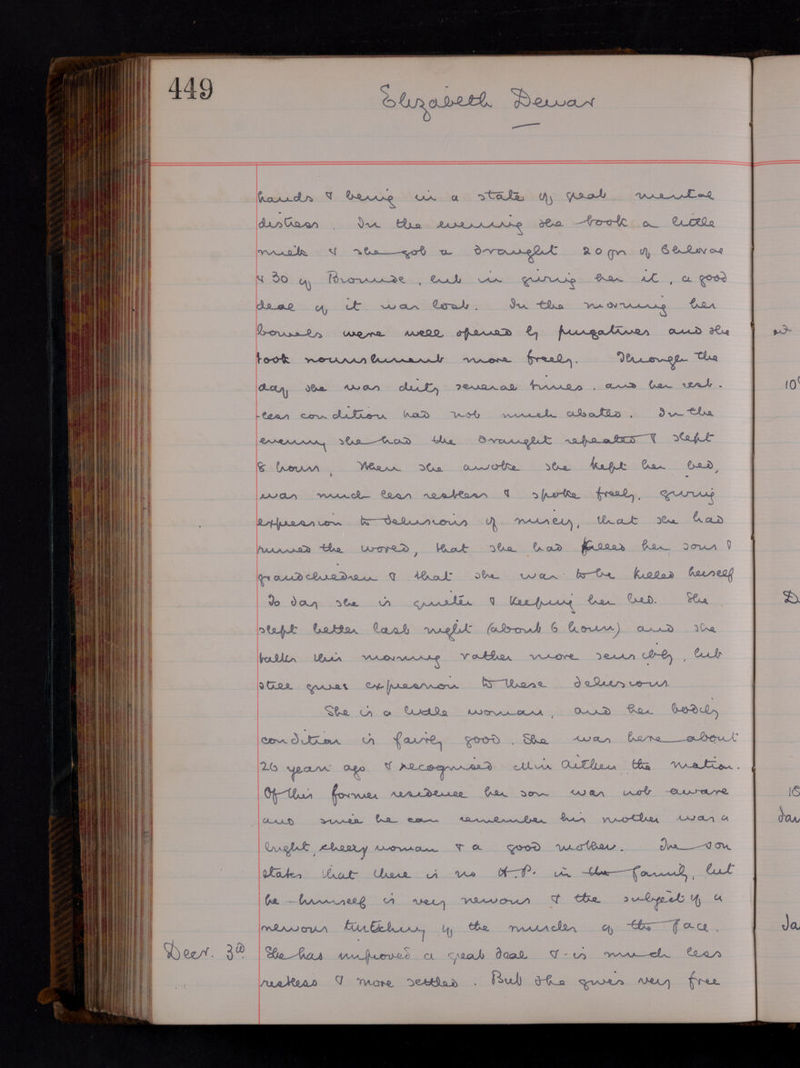 449
Elizabeth Dewar
hands & being in a state of great mental
distress. In the evening she took a little
milk & she got a draught 20 gr of Chloral
& 30 of Bromide, but in giving her it, a good
deal of it was lost. In the morning her
bowels were well opened by purgatives and she
took nourishment more freely. Through the
day she was dirty several times. and her rest-
-less condition had not much abated. In the
evening she had the draught repeated & slept
8 hours. When she awoke she kept her bed,
was much less restless & spoke freely, giving
expression to delusions of misery, that she had
ruined the world, that she had killed her sons &
grandchildren & that she was to be killed herself
To day she is quieter & keeping her bed. She
slept better last night (about 6 hours) and she
talks this morning rather more sensibly, but
still gives expression to these delusions
She is a little woman, and her bodily
condition is fairly good. She was here about
26 years ago & recognised Miss Aitken the matron.
Of this former residence her son was not aware
and since he can remember his mother was a
bright, cheery woman & a good mother. The son
states that there is no H.P. in the family, but
he himself is very nervous & the subject of a
nervous twitching of the muscles of the face.
Decr. 3d She has improved a great deal & is much less
restless & more settled. But she gives very free
10
D
Jan
Ja